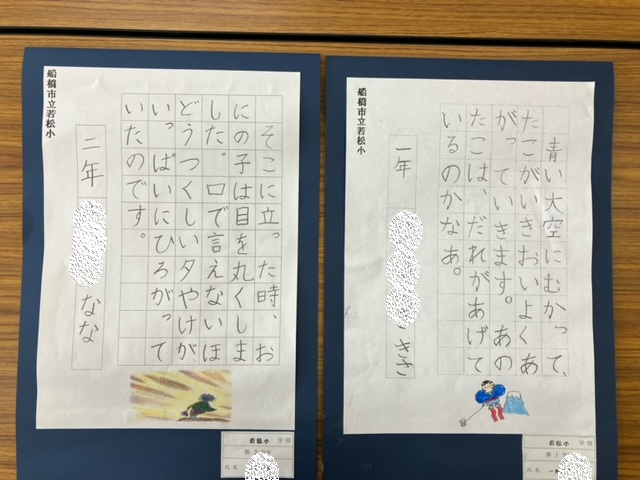 青い大空にむかって、
たこがいきおいよくあ
がっていきます。あの
たこは、だれがあげて
いるのかなあ。
一年 きさ
船橋市立若松小
若松小 学校
第1
氏名
そこに立った時、お
にの子は目を丸くしま
した。口で言えないほ
どうつくしい夕やけが
いっぱいにひろがって
いたのです。
二年 なな
船橋市立若松小
若松小 学校
氏名